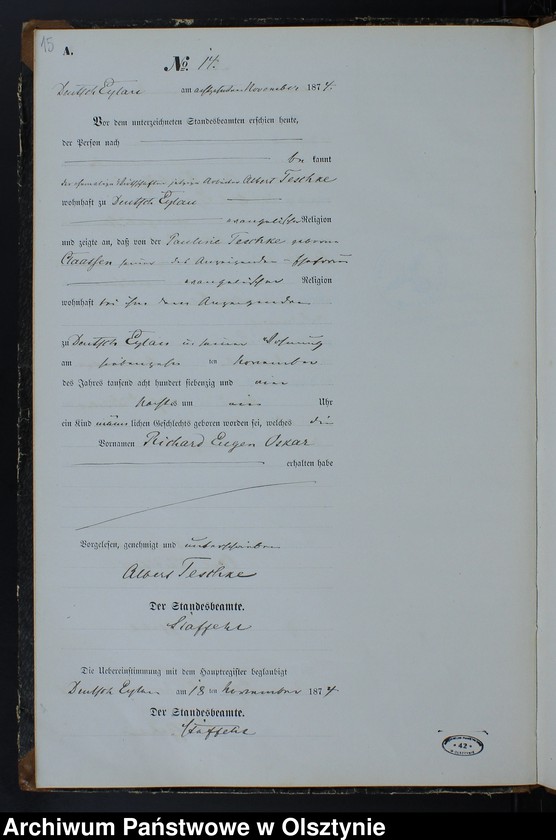 15
A.
No 17.
Deutsch Eylau am achtzehnten November 1874.
Vor dem unterzeichneten Standesbeamten erschien heute,
der Person nach
be kannt
der ehemalige Albert Teschke
wohnhaft zu Deutsch Eylau
evangelischer Religion
und zeigte an, daß von der Pauline Teschke geborene
Claassen des Anzeigenden Ehefrau
evangelischer Religion
wohnhaft bei ihm dem Anzeigenden
zu Deutsch Eylau in seiner Wohnung
am siebenzehnten November
des Jahres tausend acht hundert siebenzig und vier
Nachts um ein Uhr
ein Kind männlichen Geschlechts geboren worden sei, welches die
Vornamen Richard Eugen Oskar
erhalten habe
Vorgelesen, genehmigt und unterschrieben
Albert Teschke
Der Standesbeamte.
Staffehl
Die Uebereinstimmung mit dem Hauptregister beglaubigt
Deutsch Eylau am 18 ten November 1874
Der Standesbeamte.
Staffehl
42
Archiwum Państwowe w Olsztynie